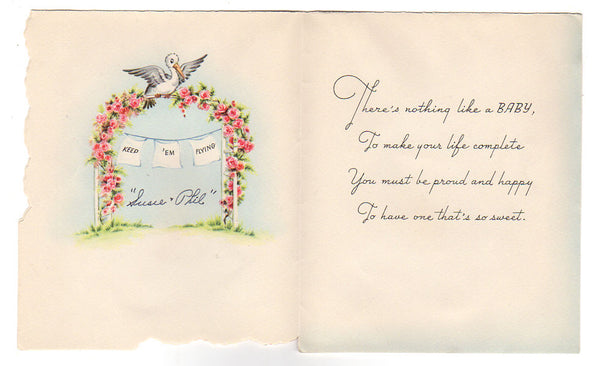 KEEP 'EM FLYING
"Susie + Phil"
There's nothing like a BABY,
To make your life complete
You must be proud and happy
To have one that's so sweet.